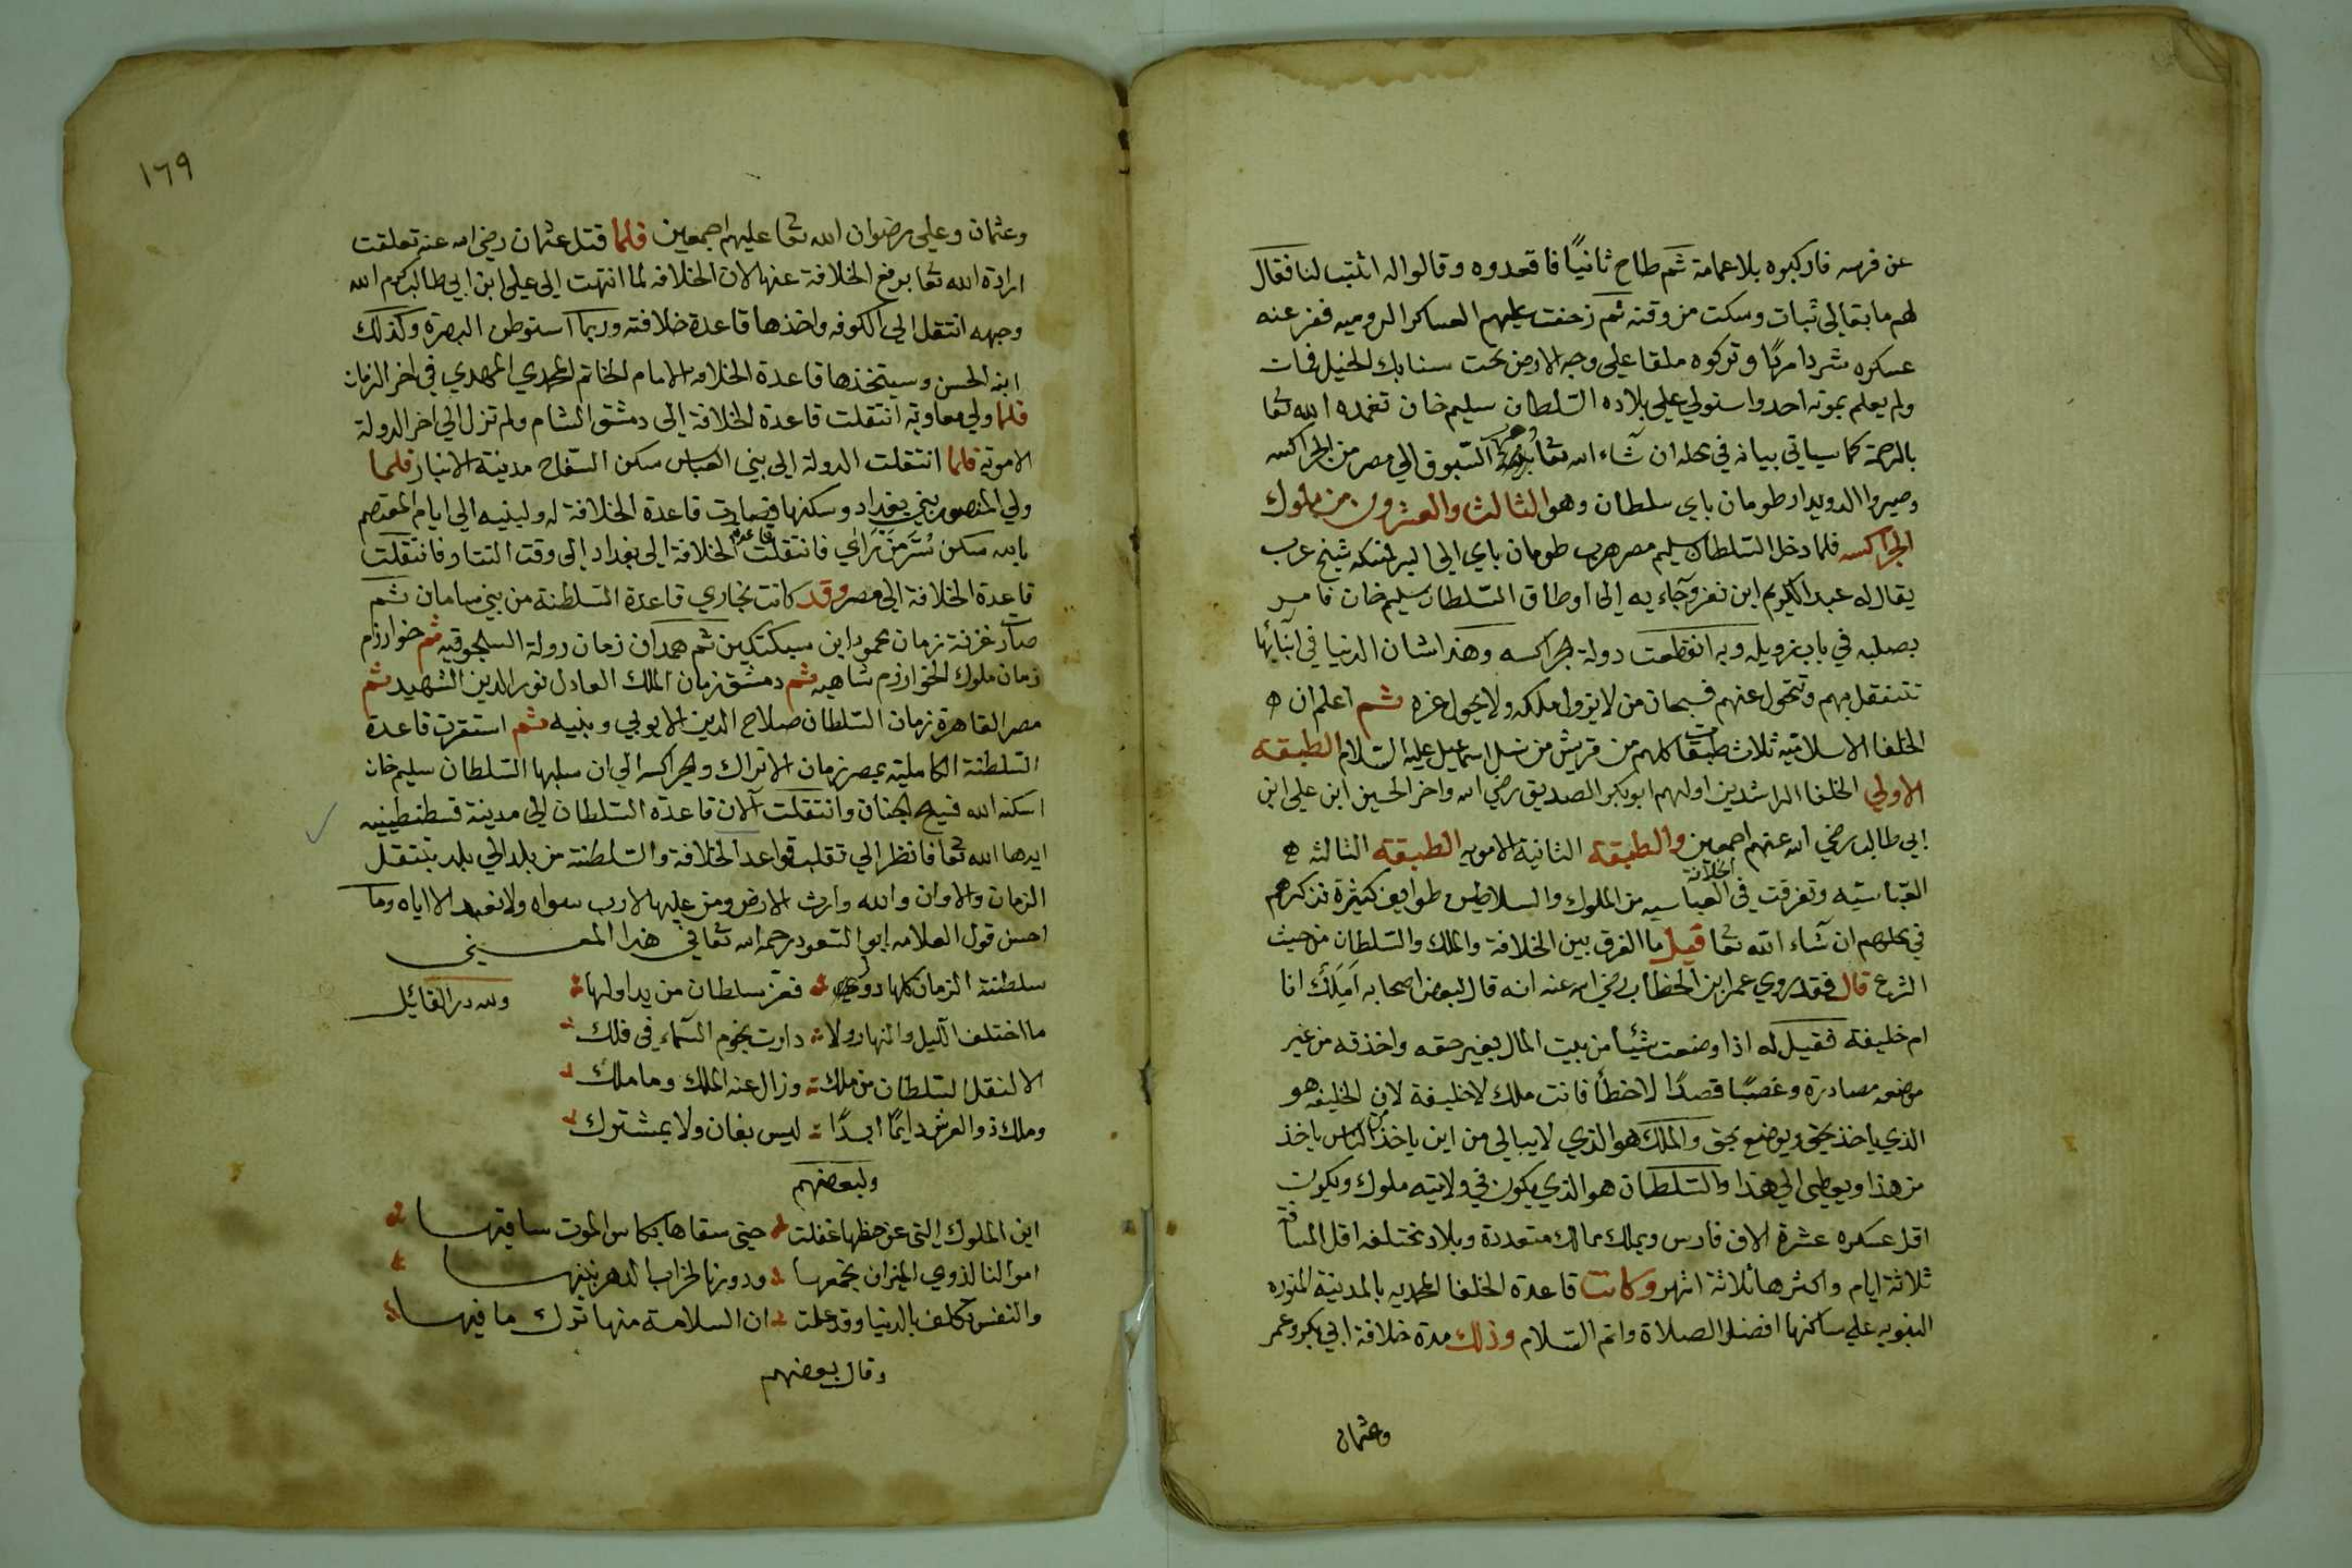 عن فرسه فاركبوه بلا عمامة ثم طاح ثانياً فاقعدوه وقالوا له اثبت لنا فقال
لهم ما بقا لي ثبات وسكت من وقته ثم زحفت عليهم العساكر الروميه ففر عنه
عسكره شردا مردا وتركوه ملقا على وجه الارض تحت سنابك الخيل فمات
ولم يعلم بموته احد واستولي علي بلاده السلطان سليم خان تغمده الله تعا
بالرحمة كما سياتي بيانه في محله ان شاء الله تعا السبوق الي مصر من الجراكسه
وصيروا الدويدار طومان باي سلطان وهو الثالث والعشرون من ملوك
الجراكسه فلما دخل السلطان سليم مصر هرب طومان باي الى البر فمسكه شيخ عرب
يقال له عبد الكريم ابن نفر وجاء به إلى اوطاق السلطان سليم خان فامر
بصلبه في باب زويله وبه انقطعت دولة الجراكسه وهذا شان الدنيا في ابنائها
تتنقل بهم وتتحول عنهم فسبحان من لا يزول ملكه ولا يحول عزه ثم اعلم ان
الخلفا الاسلاميه ثلاث طبقات كلهم من قريش من نسل اسماعيل عليه السلام الطبقه
الاولي الخلفا الراشدين اولهم ابو بكر الصديق رضي الله واخر الحسين ابن علي ابن
ابي طالب رضي الله عنهم اجمعين والطبقه الثانية الامويه الطبقه الثالثه
العباسيه وتفرقت في الخلافة العباسيه من الملوك والسلاطين طوايف كثيرة نذكرهم
في محلهم ان شاء الله تعا قيل ما الفرق بين الخلافة والملك والسلطان من حيث
الشرع قال فقد روي عمر ابن الخطاب رضي الله عنه انه قال لبعض اصحابه امَلِك انا
ام خليفة فقيل له اذا وضعت شيئا من بيت المال بغير حقه واخذته من غير
موضعه مصادرة وغصبًا قصدًا لا خطأ فانت ملك لا خليفة لان الخليفه هو
الذي ياخذ بحق ويوضع بحق والملك هو الذي لا يبالي من اين ياخذ من الناس ياخذ
من هذا ويعطى الي هذا والسلطان هو الذي يكون في ولايته ملوك ويكون
اقل عسكره عشرة الاف فارس ويملك ممالك متعددة وبلاد مختلفه اقل المسافة
ثلاثة ايام واكثرها ثلاثة اشهر وكانت قاعدة الخلفا المحمديه بالمدينة المنوره
النبويه علي ساكنها افضل الصلاة واتم السلام وذلك مدة خلافة ابي بكر وعمر
وعثمان
١٦٩
وعثمان وعلى رضوان الله تعا عليهم اجمعين فلما قتل عثمان رضي الله عنه تعلقت
ارادة الله تعا برفع الخلافة عنها لان الخلافه لما انتهت إلى علي ابن ابي طالب كرم الله
وجهه انتقل الي الكوفه واخذها قاعدة خلافته وربما استوطن البصرة وكذلك
ابنه الحسن وسيتخذها قاعدة الخلافه الامام الخاتم المحمدي المهدي في اخر الزمان
فلما ولي معاوية انتقلت قاعدة الخلافة إلى دمشق الشام ولم تزل الي اخر الدولة
الامويه فلما انتقلت الدولة إلى بني العباس سكن السفاح مدينة الانبار فلما
ولي المنصور بني بغداد وسكنها فصارت قاعدة الخلافة له ولبنيه الي ايام المعتصم
بالله سكن سُرَّ مَن رَاي فانتقلت قاعدة الخلافة الى بغداد إلى وقت التتار فانتقلت
قاعدة الخلافة الى مصر وقد كانت بخاري قاعدة السلطنة من بني سامان ثم
صارت غزنة زمان محمود ابن سبكتكين ثم همدان زمان دولة السلجوقيه ثم خوارزم
زمان ملوك الخوارزم شاهيه ثم دمشق زمان الملك العادل نور الدين الشهيد ثم
مصر القاهرة زمان السلطان صلاح الدين الايوبي وبنيه ثم استقرت قاعدة
السلطنة الكامليه بمصر زمان الاتراك والجراكسه الي ان سلبها السلطان سليم خان
اسكنه الله فسيح الجنان وانتقلت الان قاعدة السلطان إلى مدينة قسطنطينيه
ايدها الله تعا فانظر الي تقلب قواعد الخلافة والسلطنة من بلد الي بلد بتنقل
الزمان والاوان والله وارث الارض ومن عليها لا رب سواه ولا نعبد الا اياه وما
احسن قول العلامه ابو السعود رحمه الله تعا في هذا المعنى
سلطنة الزمان كلها دول فعز سلطان من يداولها
ولله در القائل
ما اختلف الليل والنهار ولا دارت نجوم السماء في فلك
الا لنقل السلطان من ملك وزال عنه الملك وما ملك
وملك ذو العرش دايمًا ابدًا ليس بفان ولا بمشترك
ولبعضهم
اين الملوك التي عن حظها غفلت حتى سقاها بكاس الموت ساقيها
اموالنا لذوي الميراث نجمعها ودورنا لخراب الدهر نبنيها
والنفس تكلف بالدنيا وقد علمت ان السلامة منها ترك ما فيها
وقال بعضهم